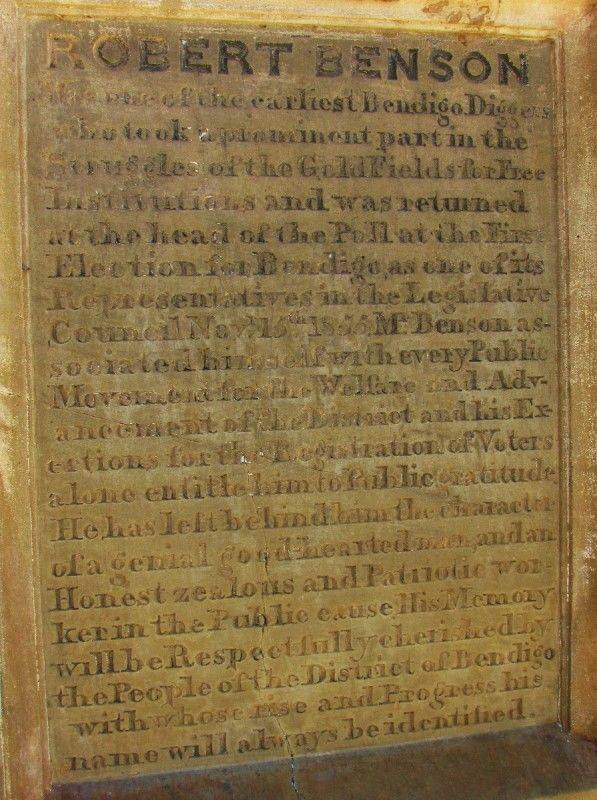 ROBERT BENSON
was one of the earliest Bendigo Diggers
who took a prominent part in the
Struggles of the Gold Fields for Free
Institutions and was returned
at the head of the Poll at the First
Election for Bendigo, as one of its
Representatives in the Legislative
Council Novr 15th 1855, Mr Benson as-
sociated himself with every Public
Movement for the Welfare and Adv-
ancement of the District and his Ex-
ertions for the Registration of Voters
alone entitle him to Public gratitude
He has left behind him the character
of a genial good-hearted man, and an
Honest zealous and Patriotic wor-
ker in the Public cause, His Memory
will be Respectfully cherished by
the People of the District of Bendigo
with whose rise and Progress his
name will always be identified.